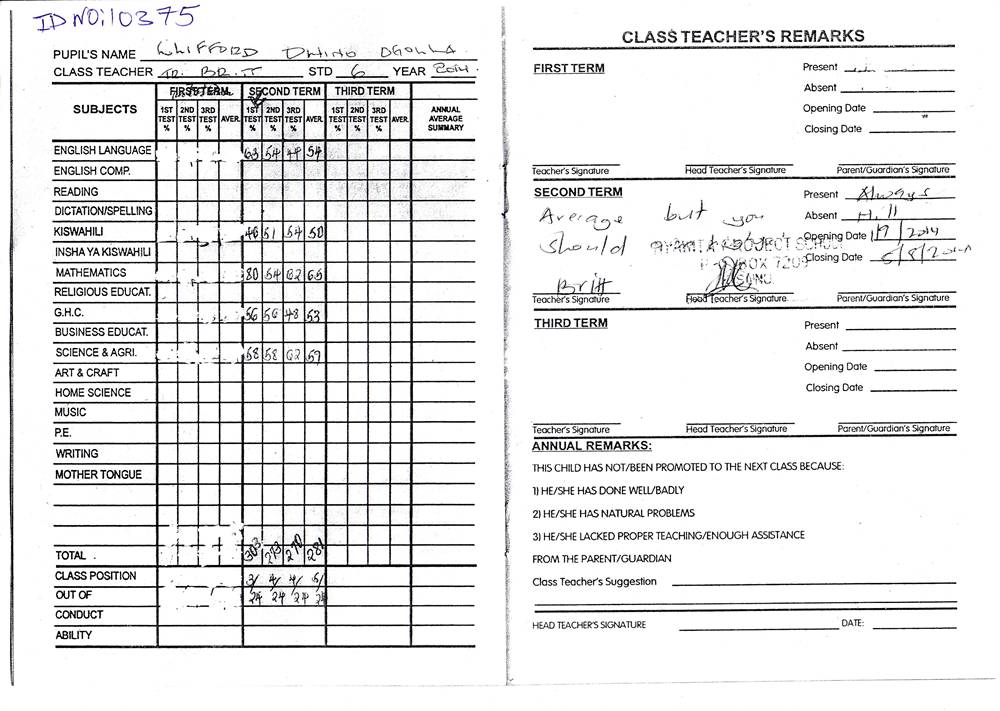 ID NO: 10375
PUPIL'S NAME CLIFFORD OWINO OGOLLA
CLASS TEACHER TR. BRITT STD 6 YEAR 2014.
SUBJECTS FIRST TERM SECOND TERM THIRD TERM
1ST TEST % 2ND TEST % 3RD TEST % AVER. 1ST TEST % 2ND TEST % 3RD TEST % AVER. 1ST TEST % 2ND TEST % 3RD TEST % AVER. ANNUAL AVERAGE SUMMARY
ENGLISH LANGUAGE 63 54 44 54
ENGLISH COMP.
READING
DICTATION/SPELLING
KISWAHILI 46 51 54 50
INSHA YA KISWAHILI
MATHEMATICS 80 54 62 65
RELIGIOUS EDUCAT.
G.H.C. 56 56 48 53
BUSINESS EDUCAT.
SCIENCE & AGRI. 58 58 62 59
ART & CRAFT
HOME SCIENCE
MUSIC
P.E.
WRITING
MOTHER TONGUE
TOTAL 303 273 270 281
CLASS POSITION 3/ 4/ 4/ 5/
OUT OF 24 24 24 24
CONDUCT
ABILITY
CLASS TEACHER'S REMARKS
FIRST TERM
Present
Absent
Opening Date
Closing Date
Teacher's Signature Head Teacher's Signature Parent/Guardian's Signature
SECOND TERM
Present Always
Absent
Average but you
Opening Date 1/9/2014
should
PROJECT SCHOOL
Closing Date 5/8/2014
BOX 7209
Britt
Teacher's Signature Head Teacher's Signature Parent/Guardian's Signature
THIRD TERM
Present
Absent
Opening Date
Closing Date
Teacher's Signature Head Teacher's Signature Parent/Guardian's Signature
ANNUAL REMARKS:
THIS CHILD HAS NOT/BEEN PROMOTED TO THE NEXT CLASS BECAUSE:
1) HE/SHE HAS DONE WELL/BADLY
2) HE/SHE HAS NATURAL PROBLEMS
3) HE/SHE LACKED PROPER TEACHING/ENOUGH ASSISTANCE
FROM THE PARENT/GUARDIAN
Class Teacher's Suggestion
HEAD TEACHER'S SIGNATURE DATE: